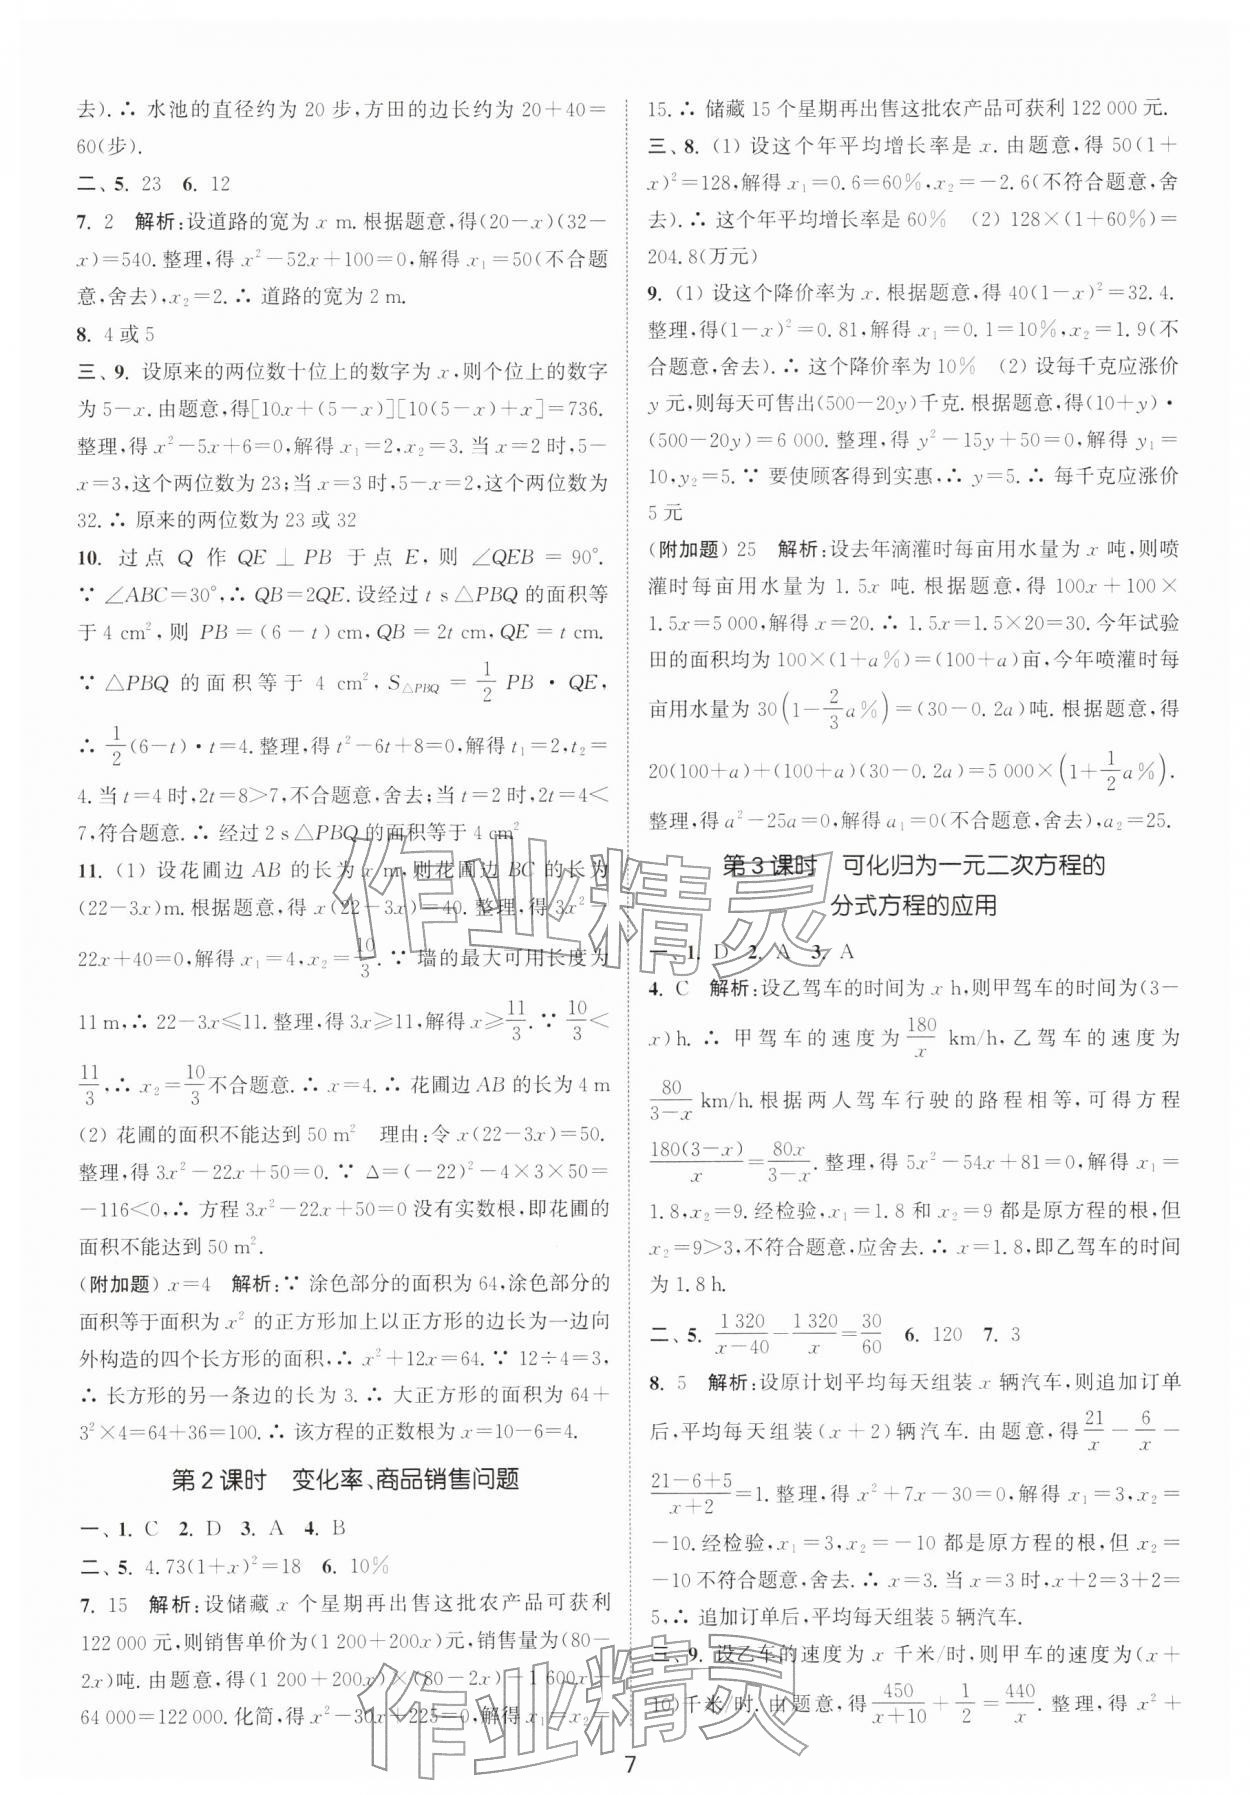 去).∴ 水池的直径约为 20 步,方田的边长约为 20+40=
60(步).
二、5. 23  6. 12
7. 2  解析:设道路的宽为 x m.根据题意,得(20-x)(32-
x)=540.整理,得 x²-52x+100=0,解得 x₁=50(不合题
意,舍去),x₂=2.∴ 道路的宽为 2 m.
8. 4 或 5
三、9. 设原来的两位数十位上的数字为 x,则个位上的数字
为 5-x.由题意,得[10x+(5-x)][10(5-x)+x]=736.
整理,得 x²-5x+6=0,解得 x₁=2,x₂=3.当 x=2 时,5-
x=3,这个两位数为 23;当 x=3 时,5-x=2,这个两位数为
32.∴ 原来的两位数为 23 或 32
10. 过点 Q 作 QE⊥PB 于点 E,则 ∠QEB=90°.
∵ ∠ABC=30°,∴ QB=2QE.设经过 t s △PBQ 的面积等
于 4 cm²,则 PB=(6-t)cm,QB=2t cm,QE=t cm.
∵ △PBQ 的面积等于 4 cm²,S△PBQ=1/2 PB·QE,
∴ 1/2(6-t)·t=4.整理,得 t²-6t+8=0,解得 t₁=2,t₂=
4.当 t=4 时,2t=8>7,不合题意,舍去;当 t=2 时,2t=4<
7,符合题意.∴ 经过 2 s △PBQ 的面积等于 4 cm²
11. (1) 设花圃边 AB 的长为 x m,则花圃边 BC 的长为
(22-3x)m.根据题意,得 x(22-3x)=40.整理,得 3x²-
22x+40=0,解得 x₁=4,x₂=10/3.∵ 墙的最大可用长度为
11 m,∴ 22-3x≤11.整理,得 3x≥11,解得 x≥11/3.∵ 10/3<
11/3,∴ x₂=10/3不合题意.∴ x=4.∴ 花圃边 AB 的长为 4 m
(2) 花圃的面积不能达到 50 m²  理由:令 x(22-3x)=50.
整理,得 3x²-22x+50=0.∵ Δ=(-22)²-4×3×50=
-116<0,∴ 方程 3x²-22x+50=0 没有实数根,即花圃的
面积不能达到 50 m².
(附加题) x=4  解析:∵ 涂色部分的面积为 64,涂色部分的
面积等于面积为 x² 的正方形加上以正方形的边长为一边向
外构造的四个长方形的面积,∴ x²+12x=64.∵ 12÷4=3,
∴ 长方形的另一条边的长为 3.∴ 大正方形的面积为 64+
3²×4=64+36=100.∴ 该方程的正数根为 x=10-6=4.
第 2 课时  变化率、商品销售问题
一、1. C  2. D  3. A  4. B
二、5. 4.73(1+x)²=18  6. 10%
7. 15  解析:设储藏 x 个星期再出售这批农产品可获利
122 000 元,则销售单价为(1 200+200x)元,销售量为(80-
2x)吨.由题意,得(1 200+200x)×(80-2x)-1 600x-
64 000=122 000.化简,得 x²-30x+225=0,解得 x₁=x₂=
15.∴ 储藏 15 个星期再出售这批农产品可获利 122 000 元.
三、8. (1) 设这个年平均增长率是 x.由题意,得 50(1+
x)²=128,解得 x₁=0.6=60%,x₂=-2.6(不符合题意,舍
去).∴ 这个年平均增长率是 60%  (2) 128×(1+60%)=
204.8(万元)
9. (1) 设这个降价率为 x.根据题意,得 40(1-x)²=32.4.
整理,得(1-x)²=0.81,解得 x₁=0.1=10%,x₂=1.9(不
合题意,舍去).∴ 这个降价率为 10%  (2) 设每千克应涨价
y 元,则每天可售出(500-20y)千克.根据题意,得(10+y)·
(500-20y)=6 000.整理,得 y²-15y+50=0,解得 y₁=
10,y₂=5.∵ 要使顾客得到实惠,∴ y=5.∴ 每千克应涨价
5 元
(附加题) 25  解析:设去年滴灌时每亩用水量为 x 吨,则喷
灌时每亩用水量为 1.5x 吨.根据题意,得 100x+100×
1.5x=5 000,解得 x=20.∴ 1.5x=1.5×20=30.今年试验
田的面积均为 100×(1+a%)=(100+a)亩,今年喷灌时每
亩用水量为 30(1-2/3a%)=(30-0.2a)吨.根据题意,得
20(100+a)+(100+a)(30-0.2a)=5 000×(1+1/2a%).
整理,得 a²-25a=0,解得 a₁=0(不合题意,舍去),a₂=25.
第 3 课时  可化归为一元二次方程的
分式方程的应用
一、1. D  2. A  3. A
4. C  解析:设乙驾车的时间为 x h,则甲驾车的时间为(3-
x)h.∴ 甲驾车的速度为 180/x km/h,乙驾车的速度为
80/(3-x) km/h.根据两人驾车行驶的路程相等,可得方程
180(3-x)/x=80x/(3-x).整理,得 5x²-54x+81=0,解得 x₁=
1.8,x₂=9.经检验,x₁=1.8 和 x₂=9 都是原方程的根,但
x₂=9>3,不符合题意,应舍去.∴ x=1.8,即乙驾车的时间
为 1.8 h.
二、5. 1 320/(x-40)-1 320/x=30/60  6. 120  7. 3
8. 5  解析:设原计划平均每天组装 x 辆汽车,则追加订单
后,平均每天组装(x+2)辆汽车.由题意,得21/x-6/x-
(21-6+5)/(x+2)=1.整理,得 x²+7x-30=0,解得 x₁=3,x₂=
-10.经检验,x₁=3,x₂=-10 都是原方程的根,但 x₂=
-10 不符合题意,舍去.∴ x=3.当 x=3 时,x+2=3+2=
5,∴ 追加订单后,平均每天组装 5 辆汽车.
三、9. 设乙车的速度为 x 千米/时,则甲车的速度为(x+
10)千米/时.由题意,得450/(x+10)+1/2=440/x.整理,得 x²+
7
作业精灵
作业精灵